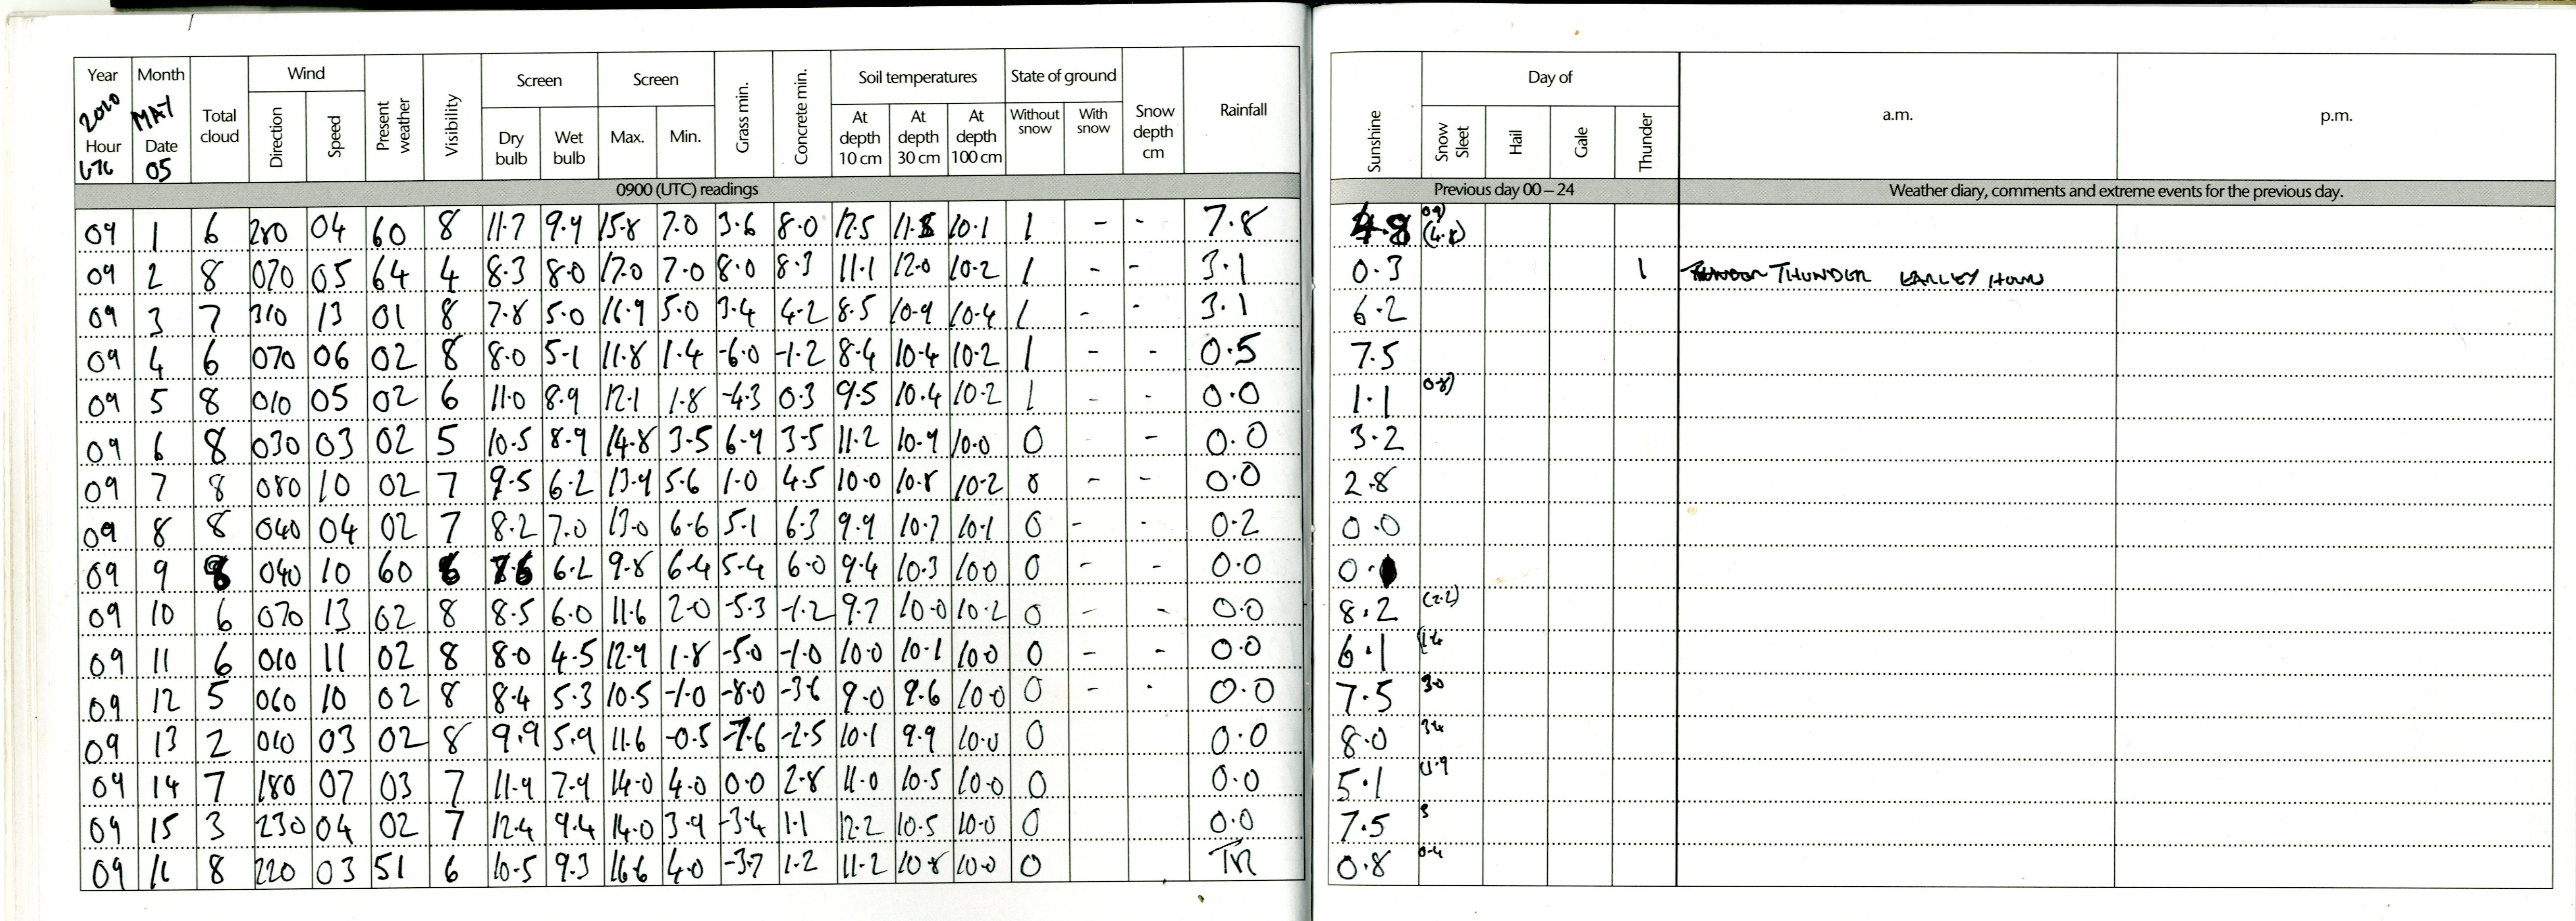 Year Month Total cloud Wind Present weather Visibility Screen Screen Grass min. Concrete min. Soil temperatures State of ground Snow depth cm Rainfall Sunshine Day of a.m. p.m.
2020 MAY Direction Speed Dry bulb Wet bulb Max. Min. At depth 10 cm At depth 30 cm At depth 100 cm Without snow With snow Snow Sleet Hail Gale Thunder
Hour Date
UTC 05
0900 (UTC) readings Previous day 00 – 24 Weather diary, comments and extreme events for the previous day.
09 1 6 280 04 60 8 11.7 9.9 15.8 7.0 3.6 8.0 12.5 11.8 10.1 1 - - 7.8 4.8 (4.8)
09 2 8 070 05 64 4 8.3 8.0 17.0 7.0 8.0 8.3 11.1 12.0 10.2 1 - - 3.1 0.3 1 THUNDER EARLEY HOURS
09 3 7 310 13 01 8 7.8 5.0 16.9 5.0 3.4 4.2 8.5 10.9 10.4 1 - - 3.1 6.2
09 4 6 070 06 02 8 8.0 5.1 11.8 1.4 -6.0 -1.2 8.4 10.4 10.2 1 - - 0.5 7.5
09 5 8 010 05 02 6 11.0 8.9 12.1 1.8 -4.3 0.3 9.5 10.4 10.2 1 - - 0.0 1.1
09 6 8 030 03 02 5 10.5 8.9 14.8 3.5 6.9 3.5 11.2 10.9 10.0 0 - 0.0 3.2
09 7 8 080 10 02 7 9.5 6.2 13.9 5.6 1.0 4.5 10.0 10.8 10.2 0 - - 0.0 2.8
09 8 8 040 04 02 7 8.2 7.0 13.0 6.6 5.1 6.3 9.9 10.7 10.1 0 - - 0.2 0.0
09 9 8 040 10 60 6 7.6 6.2 9.8 6.4 5.4 6.0 9.4 10.3 10.0 0 - - 0.0
09 10 6 070 13 02 8 8.5 6.0 11.6 2.0 -5.3 -1.2 9.7 10.0 10.2 0 - - 0.0 8.2 (2.2)
09 11 6 010 11 02 8 8.0 4.5 12.9 1.8 -5.0 -1.0 10.0 10.1 10.0 0 - - 0.0 6.1
09 12 5 060 10 02 8 8.4 5.3 10.5 -1.0 -8.0 -3.6 9.0 9.6 10.0 0 - - 0.0 7.5 3.0
09 13 2 010 03 02 8 9.9 5.9 11.6 -0.5 -7.6 -2.5 10.1 9.9 10.0 0 0.0 8.0 3.4
09 14 7 180 07 03 7 11.9 7.9 14.0 4.0 0.0 2.8 11.0 10.5 10.0 0 0.0 5.1
09 15 3 230 04 02 7 12.4 9.4 14.0 3.9 -3.4 1.1 12.2 10.5 10.0 0 0.0 7.5
09 16 8 220 03 51 6 10.5 9.3 16.6 4.0 -3.7 1.2 11.2 10.8 10.0 0 TR 0.8 0.4